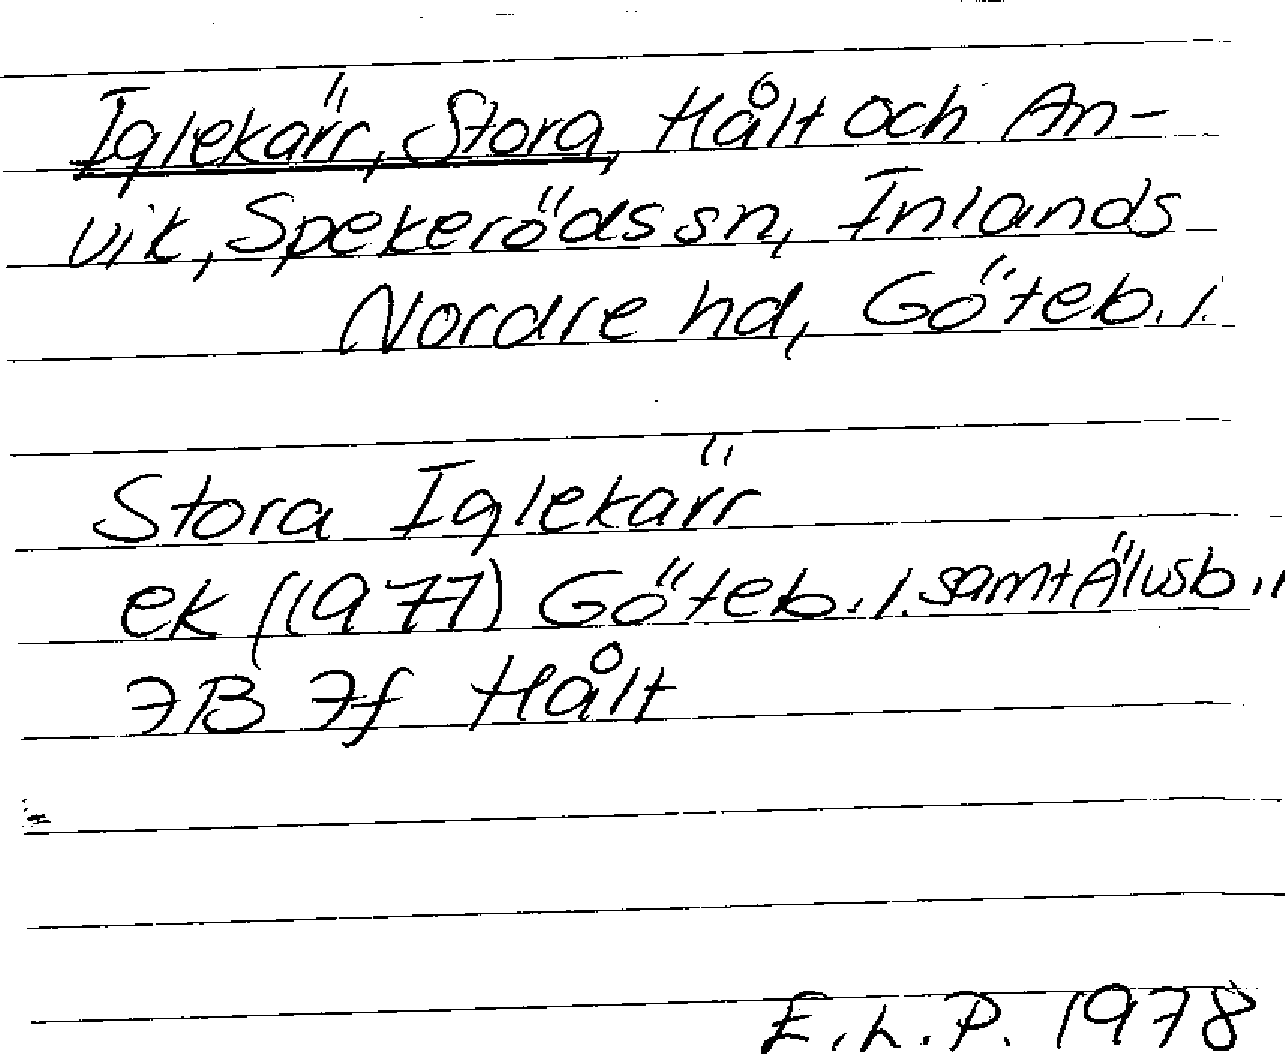 Iglekärr, Stora, Hålt och An-
vik, Spekeröds sn, Inlands
Nordre hd, Göteb. l.
Stora Iglekärr
ek (1977) Göteb. l. samt Älvsb. l
7B 7f Hålt
E.L.P. 1978